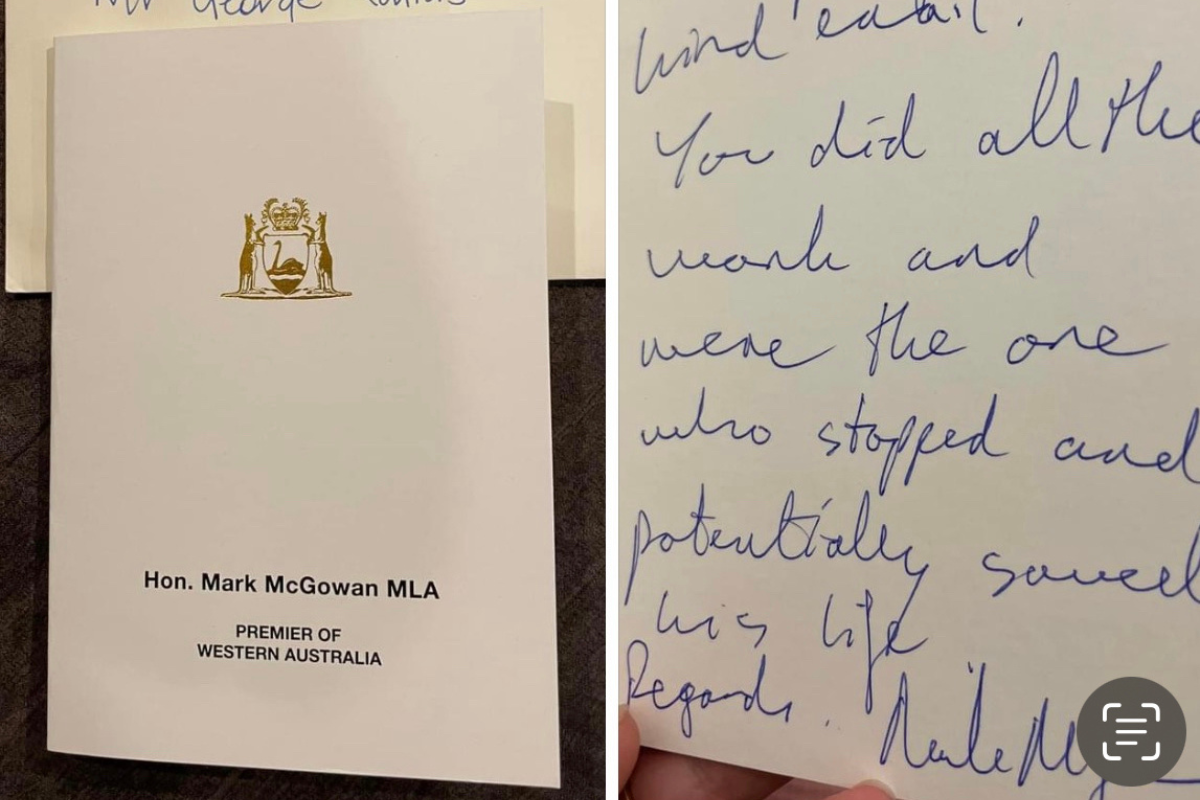 Mr George
Hon. Mark McGowan MLA
PREMIER OF
WESTERN AUSTRALIA
kind email.
You did all the
work and
were the one
who stopped and
potentially saved
his life
Regards.